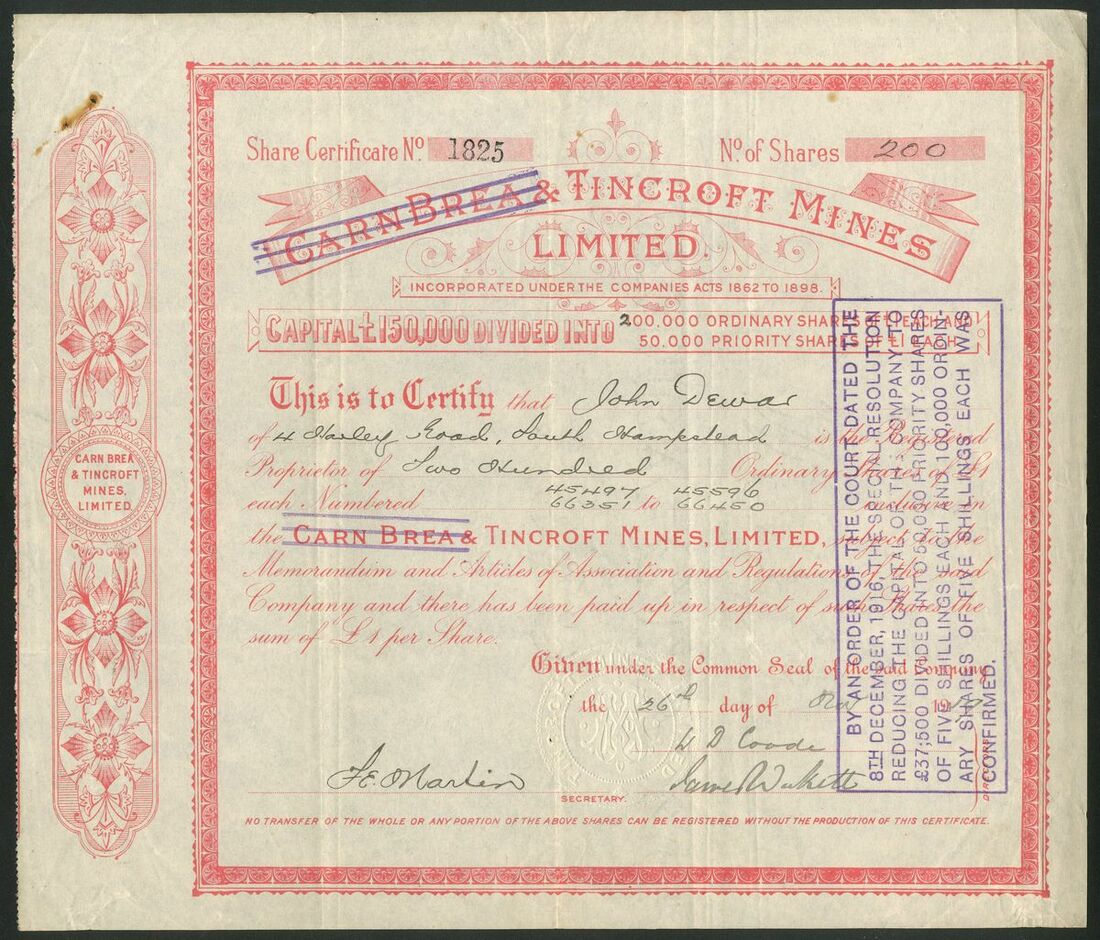 Share Certificate No. 1825
No. of Shares 200
CARN BREA & TINCROFT MINES
LIMITED.
INCORPORATED UNDER THE COMPANIES ACTS 1862 TO 1898.
CAPITAL £150,000 DIVIDED INTO
200.000 ORDINARY SHARES EACH AND
50.000 PRIORITY SHARES OF £1 EACH.
This is to Certify that John Dewar
of 4 Harley Road, South Hampstead is the Registered
Proprietor of Two Hundred Ordinary Shares of £1
45497 45596
each Numbered 66351 to 66450 inclusive in
the CARN BREA & TINCROFT MINES, LIMITED, subject to the
Memorandum and Articles of Association and Regulations of the said
Company and there has been paid up in respect of such Shares the
sum of £1 per Share.
Given under the Common Seal of the said Company
the 26th day of Nov 19
W D Coode
F.E. Martin
SECRETARY.
DIRECTORS
NO TRANSFER OF THE WHOLE OR ANY PORTION OF THE ABOVE SHARES CAN BE REGISTERED WITHOUT THE PRODUCTION OF THIS CERTIFICATE.
CARN BREA
& TINCROFT
MINES,
LIMITED
BY AN ORDER OF THE COURT DATED THE
8TH DECEMBER, 1916, THE SPECIAL RESOLUTION
REDUCING THE CAPITAL OF THE COMPANY TO
£37,500 DIVIDED INTO 50,000 PRIORITY SHARES
OF FIVE SHILLINGS EACH AND 100,000 ORDIN-
ARY SHARES OF FIVE SHILLINGS EACH WAS
CONFIRMED.